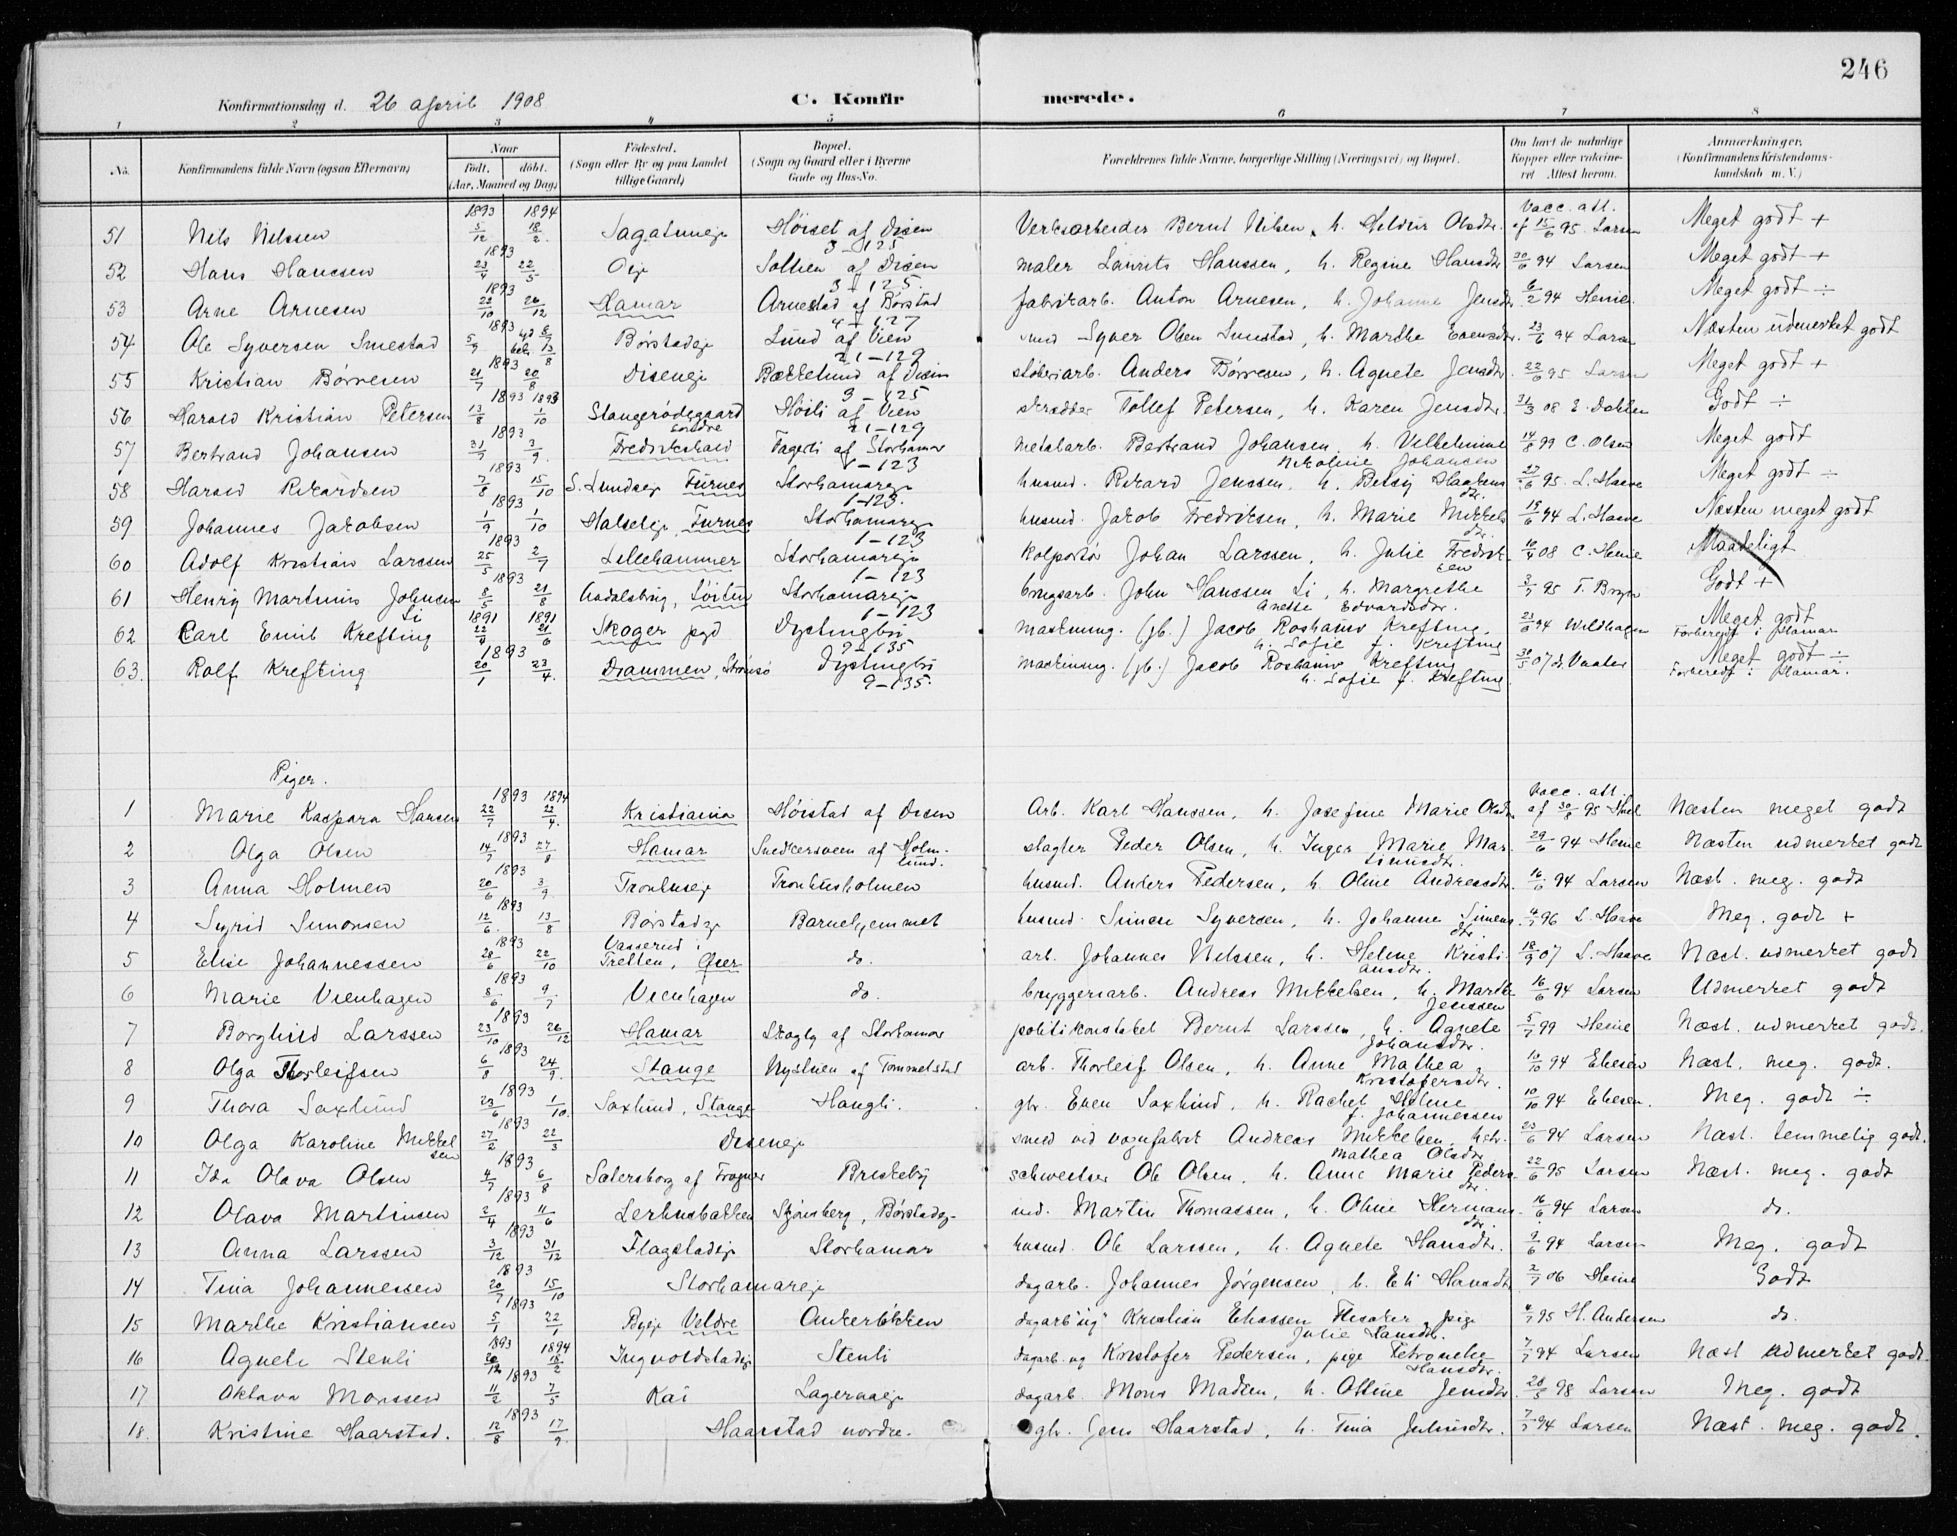 246
Konfirmationsdag d. 26 april 1908 C. Konfirmerede.
1 2 3 4 5 6 7 8
No. Konfirmandens fulde Navn (ogsaa Efternavn) Naar født. døbt. (Aar, Maaned og Dag) Fødested. (Sogn eller By og paa Landet tillige Gaard) Bopæl. (Sogn og Gaard eller i Byerne Gade og Hus-No. Forældrenes fulde Navne, borgerlige Stilling (Næringsvei) og Bopæl. Om havt de naturlige Kopper eller vaccineret Attest herom. Anmærkninger. (Konfirmandens Kristendomskundskab m. V.)
1893 1894 vacc. att.
51 Nels Nilssen 5/12 18/2 Sagatuneje Høiset af Disen 3-125 Verksarbeider Bernt Nilsen, h. Olsdtr. af 15/6 95 Larsen Meget godt +
52 Hans Hanssen 1893 23/4 22/5 Oeje af Disen 3-125. maler Laurits Hanssen, h. Regine Hansdtr 20/6 94 Larsen Meget godt +
53 Arne Arnesen 1893 22/10 26/12 Hamar Arnestad af Børstad 4-127 fabrikarb. Anton Arnesen, h. Johanne Jensdtr 6/2 94 Heme Meget godt ÷
54 Ole Syversen Smestad 1893 5/7 13/8 Børstadeje Lund af Vien 21-129 smed Syver Olsen Smestad, h. Marthe Evensdtr. 23/6 94 Larsen Næsten udmerket godt
55 Kristian Børresen 1893 21/7 20/8 Diseneje Bækkelund af Disen 3-125 støberiarb. Anders Børresen, h. Agnete Jensdtr. 22/6 95 Larsen Meget godt +
56 Harald Kristian Petersen 1893 1893 13/8 1/10 Stangerødegaard søndre Høili af Vien 21-129 skrædder Tollef Petersen, h. Karen Jensdtr. 31/3 08 E. Dahlen Godt ÷
57 Bertrand Johansen 1893 31/7 3/9 Fredrikshald Fagerli af Storhamar 1-123 metalarb. Bertrand Johansen, h. Vilhelmine Nikoline Johansen 14/8 99 C. Olsen Meget godt
58 Harald Rikardsen 1893 7/8 15/10 S. Lundseje Furnes Storhamareje 1-123. husmd. Rikard Jenssen, h. Betsy Haagensdtr. 27/6 95. L. Haave Meget godt ÷
59 Johannes Jakobsen 1893 1/9 1/10 Halseleje, Furnes Storhamareje 1-123 husmd. Jakob Fredriksen, h. Marie Mikkelsdtr. 15/6 94 L. Haave Næsten meget godt
60 Adolf Kristian Larssen 1893 25/5 2/7 Lillehammer Storhamareje 1-123 kolportør Johan Larssen, h. Julie Fredriksen 10/4 08 C. Heme Maadeligt
61 Henry Martinius Johnsen Li 1893 8/5 21/8 Aadalsbrug, Løiten Storhamareje 1-123 brugsarb. John Hanssen Li, h. Margrethe Anette Edvardsdtr. 3/7 95 T. Bryn Godt +
62 Carl Emil Krefting 1891 1891 22/4 21/6 Skoger pgd Dystingbo 9-135 maskining. (gb.) Jacob Roshauw Krefting, h. Sofie f. Krefting 23/6 94 Wildhagen Meget godt Forberedt i Hamar
63. Rolf Krefting 1893 20/1 23/4. Drammen, Strømsø Dystingbo 9-135. maskining. (gb.) Jacob Roshauw Krefting h. Sofie f. Krefting 30/5 07 d. Vaaler Meget godt ÷ Forberedt i Hamar.
Piger.
1893 1894 vacc. att.
1 Marie Kaspara Hansen 22/7 22/4. Kristiania Høistad af Disen Arb. Karl Hanssen, h. Josefine Marie Olsdtr af 30/8 95 Næsten meget godt
2 Olga Olsen 1893 14/7 27/8 Hamar Snedkersveen af Holmlund. slagter Peder Olsen, h. Inger Marie Martinusdtr. 29/6 94 Heme Næsten udmerket godt
3 Anna Holmen 1893 20/6 3/9 Tronhuseje Tronhusholmen husmd. Anders Pedersen, h. Oline Andreasdtr. 16/6 94 Larsen Næst. meg. godt
4 Sigrid Simonsen 1893 12/6. 13/8 Børstadeje Barnehjemmet husmd. Simen Syversen, h. Johanne Simensdtr. 4/7 96 L. Haave Meg. godt +
5 Elise Johannessen 1893 28/6 22/10 Vasserud i Tretten, Øier do. arb. Johannes Nilssen, h. Helene Kristiansdtr. 18/9 07 L. Haave Næst. udmerket godt
6 Marie Vienhagen 1893 8/6 9/7 Vienhagen do. bryggeriarb. Andreas Mikkelsen, h. Marthe Jenssen 16/6 94 Larsen Udmerket godt
7 Borghild Larssen 1893 23/10 26/12 Hamar Skogly af Storhamar politikonstabel Bernt Larssen, h. Agnete Johansdtr. 5/7 99 Heme Næst. udmerket godt.
8 Olga Thorleifsen 1893 6/8 24/9. Stange Nystuen af Tommelstad arb. Thorleif Olsen, h. Anne Mathea Kristofersdtr. 10/10 94 Eliesen Næst. meg. godt.
9 Thora Saxlund 1893 23/6 1/10. Saxlund, Stange Haugli. gbr. Even Saxlund, h. Rachel Helene f. Johannessen 10/10 94 Eliesen. Meg. godt ÷
10 Olga Karoline Mikkelsen 1893 27/2 22/3 Diseneje smed ved vognfabrik Andreas Mikkelsen, h. Mathea Olsdtr 23/6 94 Larsen Næst. temmelig godt.
11 Ida Olava Olsen 1893 4/7 6/8 Sætersborg af Frogner Briskeby schweitser Ole Olsen, h. Anne Marie Pedersdtr. 22/6 95 Larsen Næst. meg. godt
12 Olava Martinsen 1893 2/4 11/6 Lerhusbakken Skjønsberg, Børstadeje smd. Martin Thomassen, h. Oline Hermansdtr. 16/6 94 Larsen do.
13 Anna Larssen 1893 3/12 31/12 Flagstadeje Storhamar husmd. Ole Larssen, h. Agnete Hansdtr. 9/6 94 Larsen Meg. godt
14 Tina Johannessen 1893 20/7 15/10 Storhamareje dagarb. Johannes Jørgensen, h. Eli Hansdtr 2/7 06 Heme Godt
15 Marthe Kristiansen 1893 5/1 22/1 Byeje Veldre Ankerløkken dagarb. ug. Kristian Eliassen, pige Julie Hansdtr. 4/7 95 H. Andersen do.
16 Agnete Stenli 1893 1894 20/12 18/2 Ingvoldstadeje Stenli dagarb. ug Kristofer Pedersen, pige Petronelle Hansdtr. 7/7 94 Larsen Næst udmerket godt.
17 Oktava Monssen 1893 11/2 7/5 Kai dagarb. Mons Madsen, h. Olline Jensdtr. 28/5 98 Larsen Meg. godt
18. Kristine Haarstad. 1893 12/8 17/9. Haarstad nordre. gbr. Jens Haarstad, h. Tina Juliusdtr. 7/7 94 Larsen Næst. meg. godt.